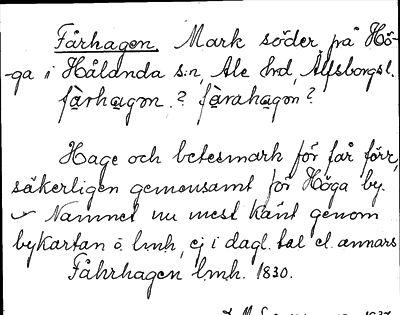 Fårhagen. Mark söder på Hö-
-ga i Hålanda s:n, Ale hd, Älfsborgs l.
fårhagən.? fårahagən?
Hage och betesmark för får förr,
säkerligen gemensamt för Höga by.
Namnet nu mest känt genom
bykartan o. lmh, ej i dagl. tal el. annars
Fåhrhagen lmh. 1830.